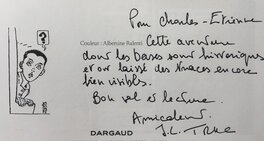 ?
Pour Charles-Etienne
Couleur : Albertine Ralenti
Cette aventure
dont les bases sont historiques
et ont laissé des traces encore
bien visibles.
Bon vol et lecture.
Amicalement
DARGAUD